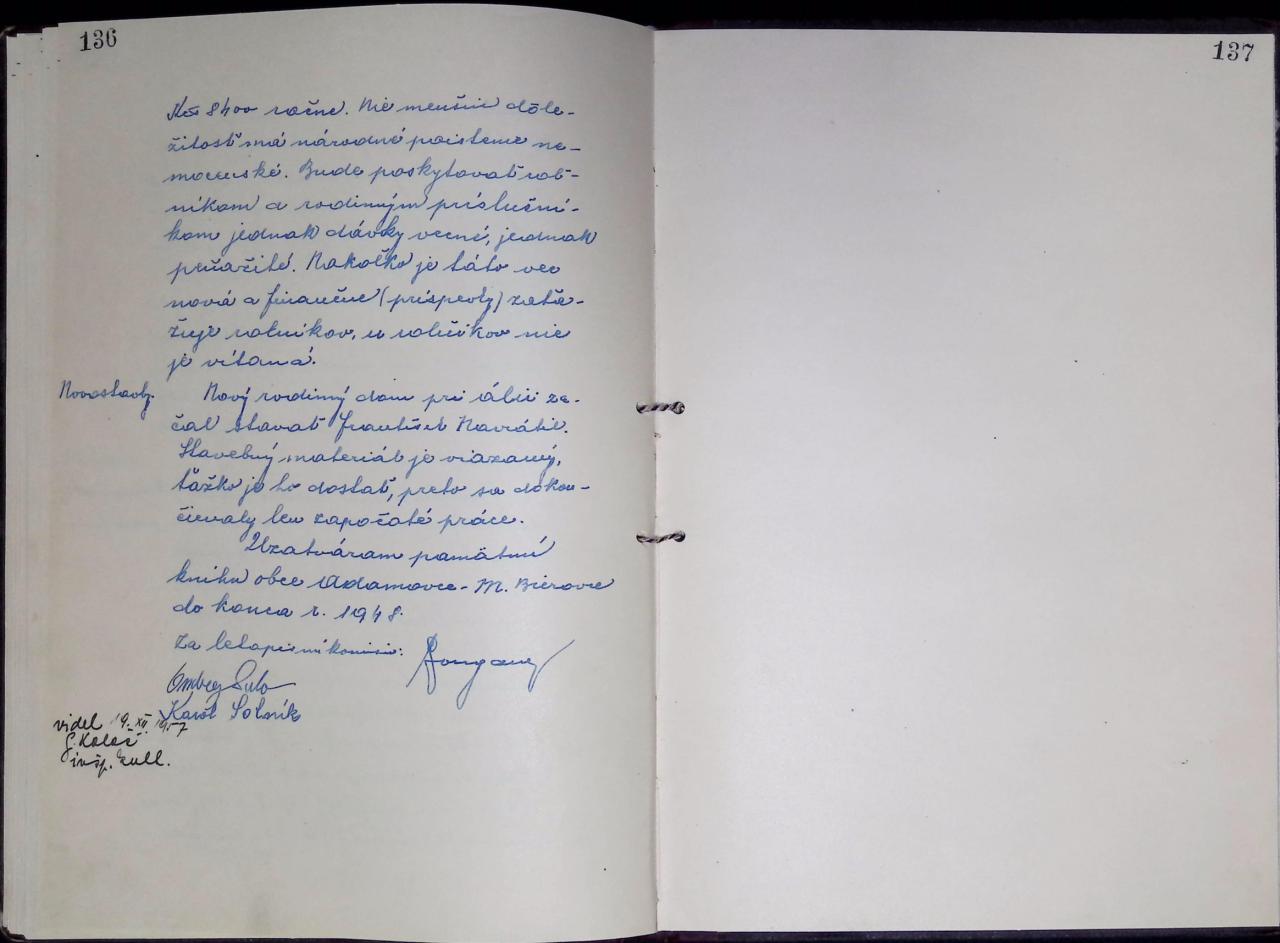 136
Kčs 8400 ročne. Nie menšiu dôle-
žitosť má národné poistenie ne-
mocenské. Bude poskytovať rol-
níkom a rodinným príslušní-
kom jednak dávky vecné, jednak
peňažité. Nakoľko je táto vec
nová a finančne (príspevky) zaťa-
žuje rolníkov, u roľníkov nie
je vítaná.
Novostavby.
Nový rodinný dom pri ulici za-
čal stavať František Navrátil.
Stavebný materiál je viazaný,
ťažko je ho dostať, preto sa dokon-
čievaly len započaté práce.
Uzatváram pamätnú
knihu obce Adamovce - M. Bierovce
do konca r. 1948.
Za letopisnú komisiu:
Ondrej
Karol
videl 19. XII. 1957
inšp. kult.
137